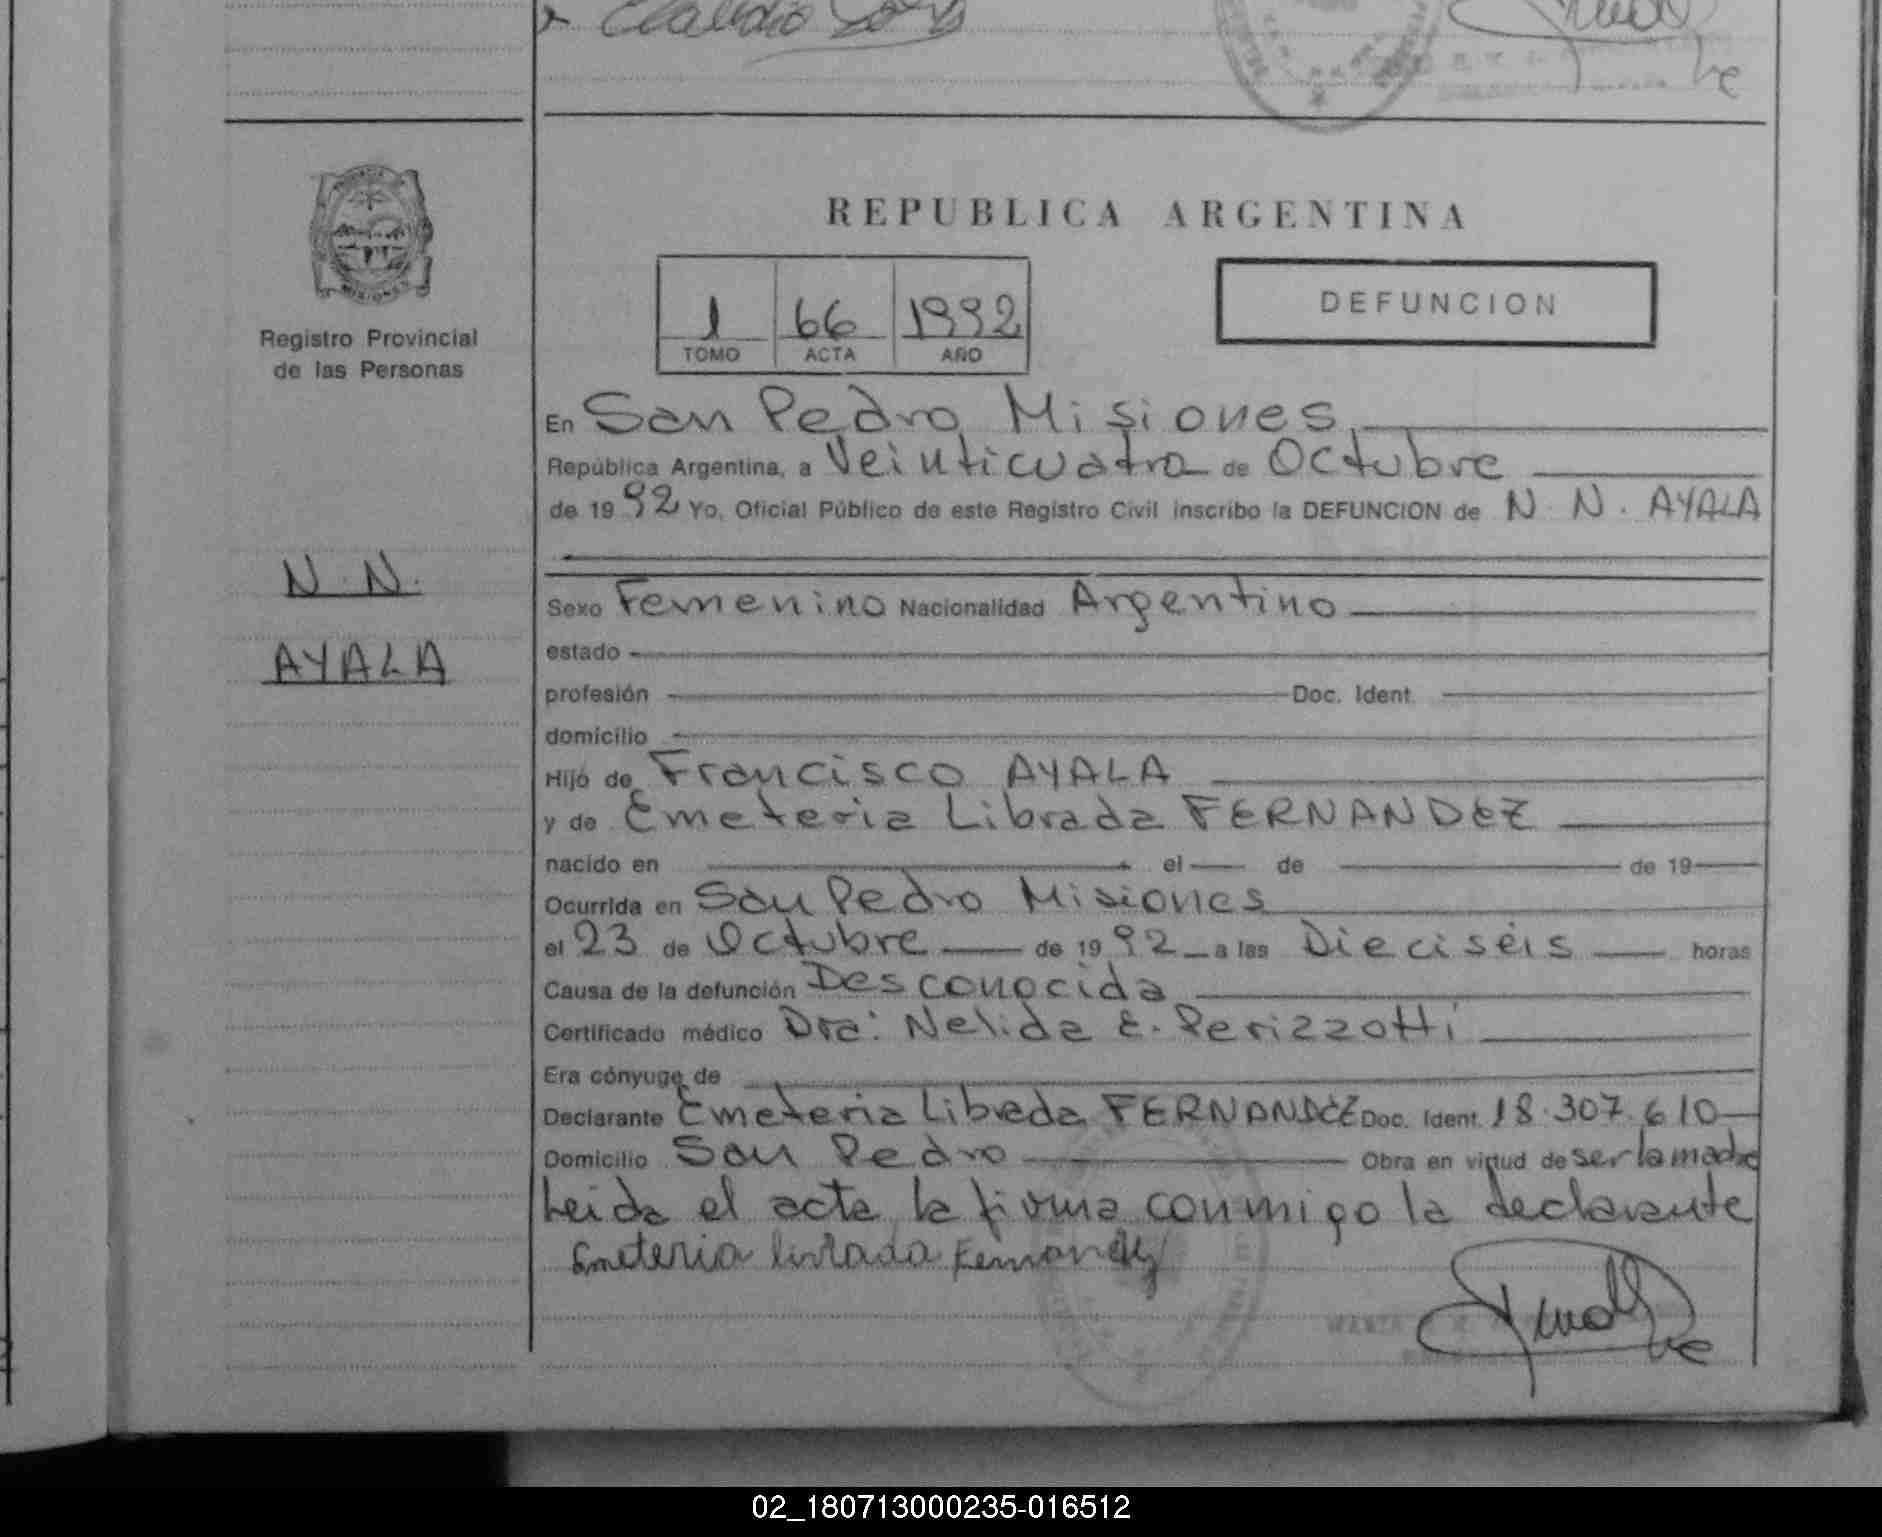 Claudio
REPUBLICA ARGENTINA
1 66 1992
TOMO ACTA AÑO
DEFUNCION
Registro Provincial
de las Personas
N. N.
AYALA
En San Pedro Misiones
República Argentina, a Veinticuatro de Octubre
de 1992 Yo, Oficial Público de este Registro Civil inscribo la DEFUNCION de N. N. AYALA
Sexo Femenino Nacionalidad Argentino
estado
profesión Doc. Ident.
domicilio
Hijo de Francisco AYALA
y de Emeteria Librada FERNANDEZ
nacido en el de de 19
Ocurrida en San Pedro Misiones
el 23 de Octubre de 1992 a las Dieciséis horas
Causa de la defunción Desconocida
Certificado médico Dra: Nelida E. Perizzotti
Era cónyuge de
Declarante Emeteria Librada FERNANDEZ Doc. Ident. 18.307.610
Domicilio San Pedro Obra en virtud de ser la madre
Leida el acta la firma conmigo la declarante
Emeteria librada Fernandez
02_180713000235-016512